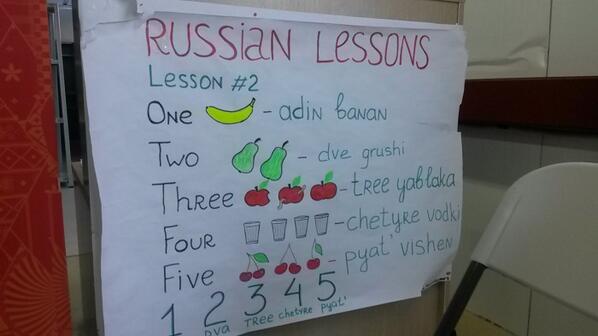 RUSSIAN LESSONS
LESSON #2
ONE - adin banan
TWO - dve grushi
THREE - tree yablaka
FOUR - chetyre vodki
FIVE - pyat' vishen
1 2 3 4 5
DVA TREE chetyre pyat'